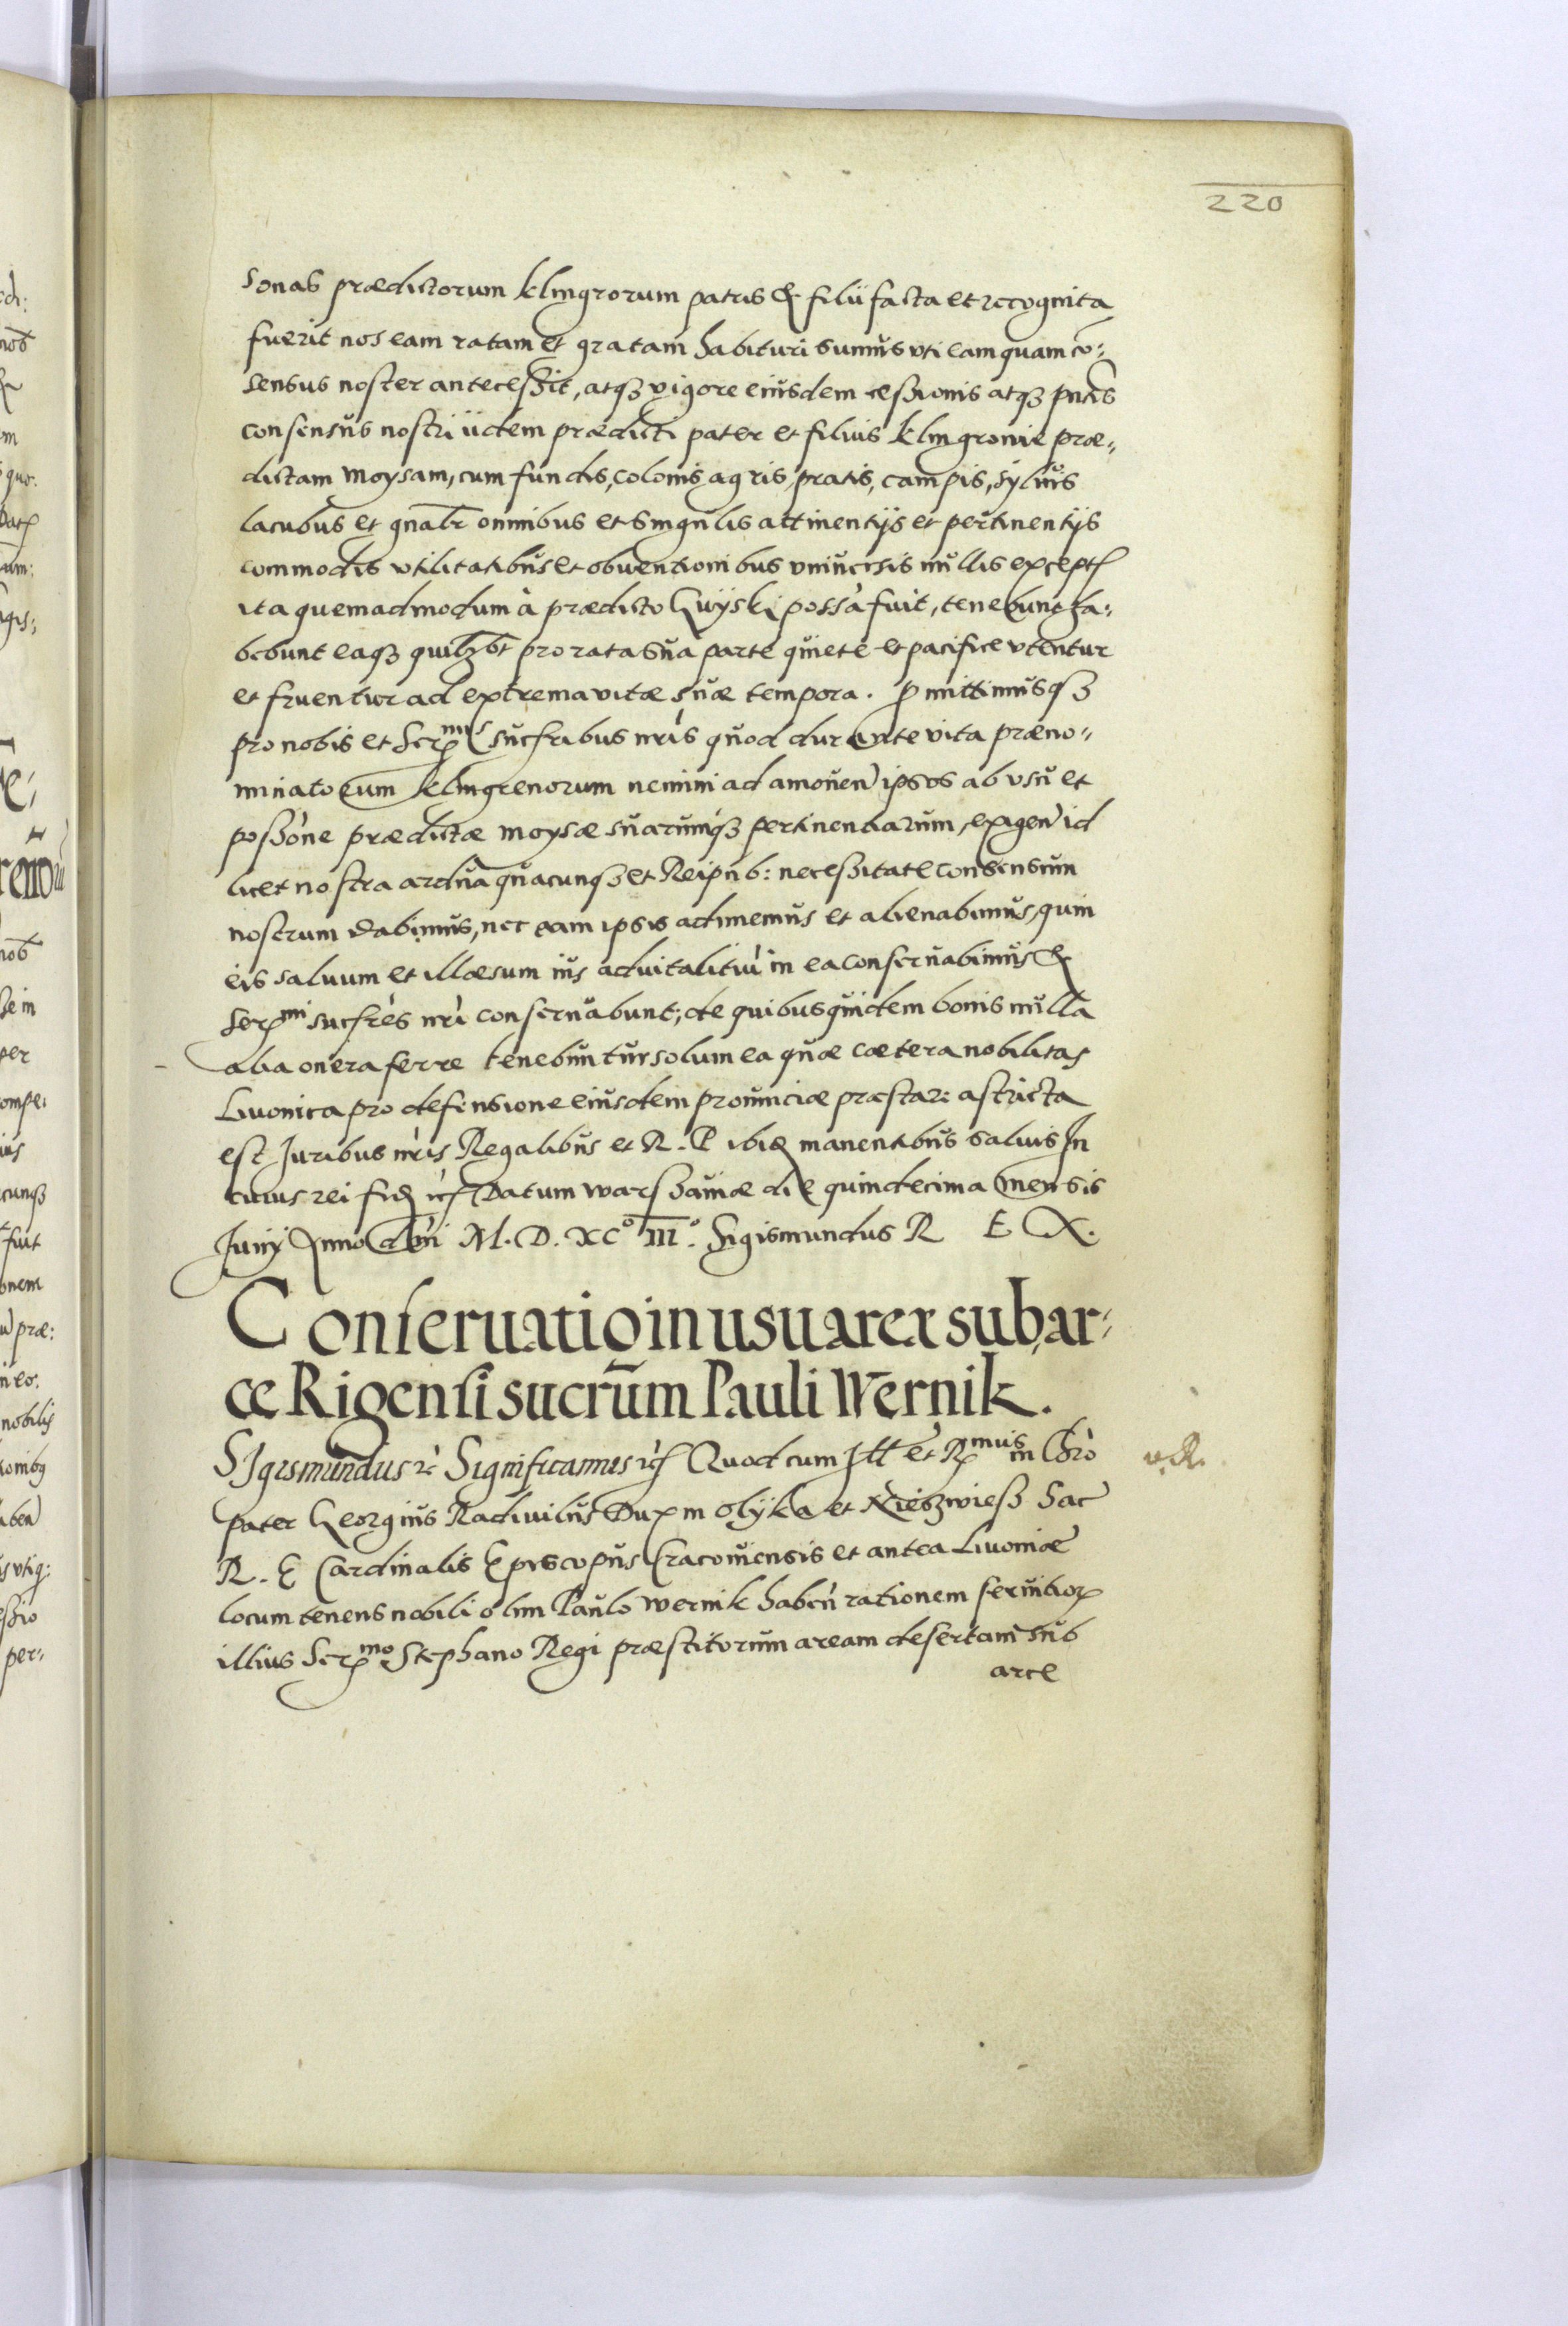 220
sonas prædictorum klingrorum patris & filii facta et recognita
fuerit nos eam ratam et gratam habituri sumus uti eam quam cō:
sensus noster antecessit, atqȝ vigore eiusdem cessionis atqȝ pntis
consensus nostri iidem prædicti pater et filius klingronie præ„
dictam moysam, cum fundis, colonis, agris, pratis, campis, sylvis
lacubus et gnalr omnibus et singulis attinentijs et pertinentijs
commodis utilitatibus et obventionibus universis nullis except
ita quemadmodum à prædicto Guyski possà fuit, tenebunt ha:
bebunt eaqȝ quilȝbt pro rata sua parte quiete et pacifice utentur
et fruentur ad extrema vitæ suæ tempora. Pmittimusqȝ
pro nobis et Ser^mis sucfribus nris quod durante vita præno„
minatorum klingrenorum nemini ad amouen ipsos ab usu et
possòne prædictæ moysæ suarumqȝ pertinentiarum, exigen id
licet nostra ardua quacunqȝ et Reipub: necessitate consensum
nostrum dabimus, nec eam ipsis adimemus et alienabimus, quin
eis salvum et illæsum ius advitalitiù in ea conservabimus &
Ser^mi sucfres nri conservabunt; de quibus quidem bonis nulla
alia onera ferre tenebuntur solum ea quæ cætera nobilitas
Livonica pro defensione eiusdem provinciæ præstare astricta
est Juribus nris Regalibus et R. P ibiđ manentibus salvis In
cuius rei fiđ etc Datum warssaviæ die quindecima mensis
Junij Anno dni M. D. XC° III°. Sigismundus R E X.
Conservatio in usu areæ sub ar„
ce Rigensi sucrum Pauli Wernik.
Sigismundus etc Significamus etc Quod cum Ill et R^mus in Chrò
v. R.
pater Georgius Radivilus Dux in olijka et Nieszwiess Sac
R. E Cardinalis Episcopus Cracoviensis et antea Livoniæ
locum tenens nobili olim Paulo wernik haben rationem servitior
illius Ser^mo Stephano Regi præstitorum aream desertam sub
arce